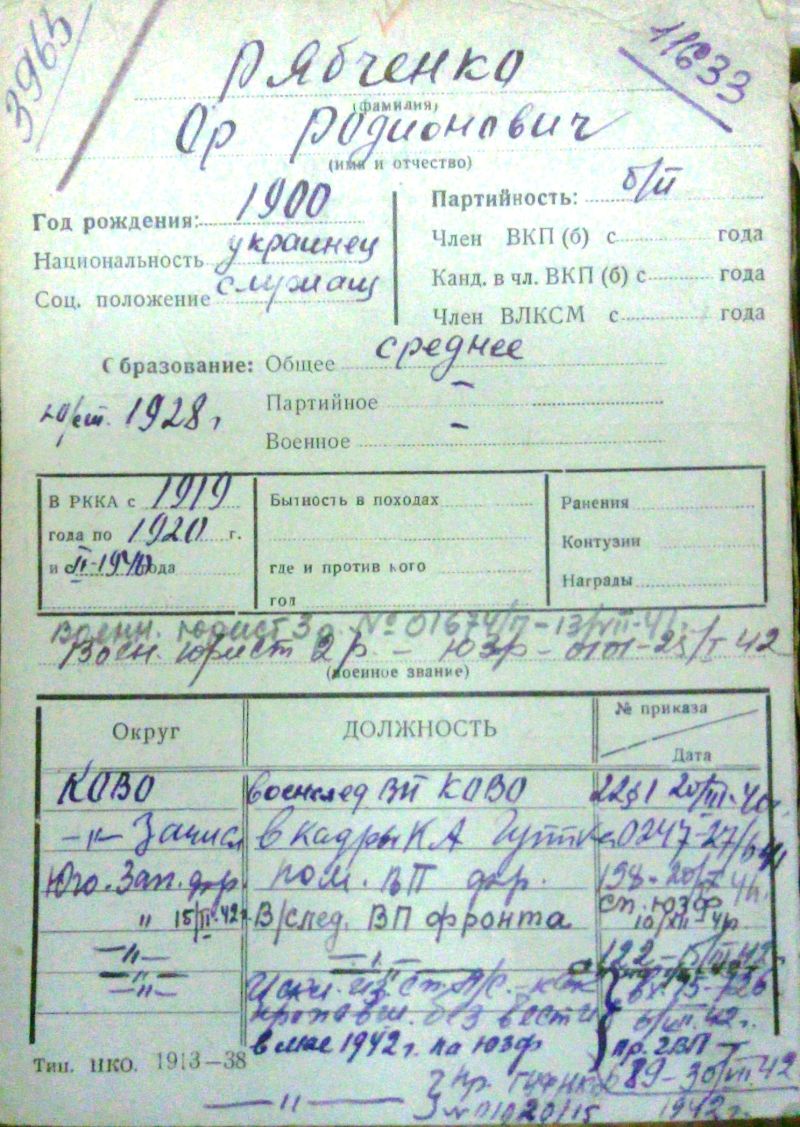 3965
11633
Рябченко
(фамилия)
Ор Родионович
(имя и отчество)
Год рождения: 1900
Национальность украинец
Соц. положение служащ
Партийность: б/п
Член ВКП (б) с года
Канд. в чл. ВКП (б) с года
Член ВЛКСМ с года
Образование: Общее среднее
Партийное –
Военное –
1928 г
В РККА с 1919
года по 1920 г.
и года
Бытность в походах
где и против кого
год
Ранения
Контузии
Награды
Военн. юрист 3 р. № 01674/п - 13/VII-41г.
Воен. юрист 2 р. – ЮЗФ – 0101-25/I 42
(военное звание)
Округ
ДОЛЖНОСТЬ
№ приказа
Дата
КОВО военслед ВП КОВО 2281 20/III-40г.
-"- Зачисл в кадры КА 0247-27/
Юго. Зап. фр. пом. ВП фр. 198-20/
сп. ЮЗФ
" 15/II-42г. В/след. ВП фронта 10/XII-41г.
-"- -"- 122-15/III 42г.
-"-
-"- Искл. из сп. л/с. - как
пропавш. без вести
в мае 1942 г. на ЮЗФ пр. ГВП
89-30/VII 42
Тип. НКО. 1913—38
-"- 1942 г.